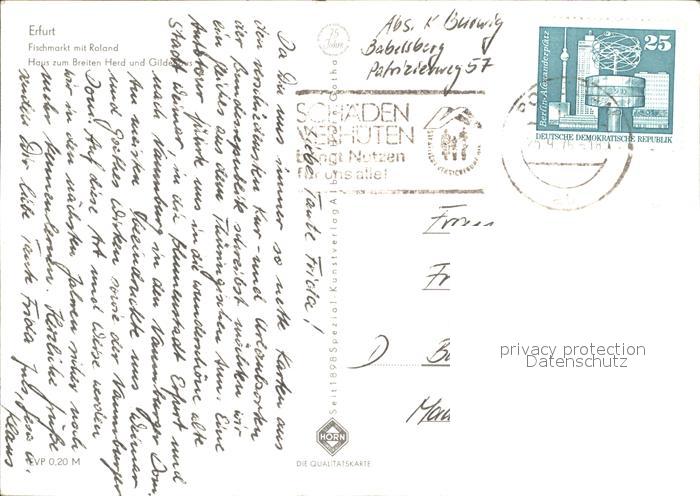 Erfurt
Fischmarkt mit Roland
Haus zum Breiten Herd und Gilde
EVP 0,20 M
Liebe Tante Frida!
Da Du uns immer so nette Karten aus
den verschiedensten Kur- und Urlaubsorten
der Bundesrepublik schreibst möchten wir
ein gleiches aus dem Thüringischen tun. Eine
Autotour führte uns in die wunderschöne alte
Stadt Weimar, in die Blumenstadt Erfurt und
nach Naumburg in den Naumburger Dom.
Am meisten beeindruckte uns Weimar
und Goethes Wirken sowie der Naumburger
Dom. Auf diese Art und Weise werden
wir in den nächsten Jahren sicher noch
mehr kennenlernen. Herzliche Grüße
senden Dir liebe Tante Frida
Klaus
75
Jahre
Seit 1898 Spezial-Kunstverlag Gotha
HORN
DIE QUALITÄTSKARTE
Abs. K
Babelsberg
Patrizierweg 57
SCHÄDEN
VERHÜTEN
bringt Nutzen
für uns alle!
Berlin-Alexanderplatz
25
DEUTSCHE DEMOKRATISCHE REPUBLIK
Fr
D
privacy protection
Datenschutz